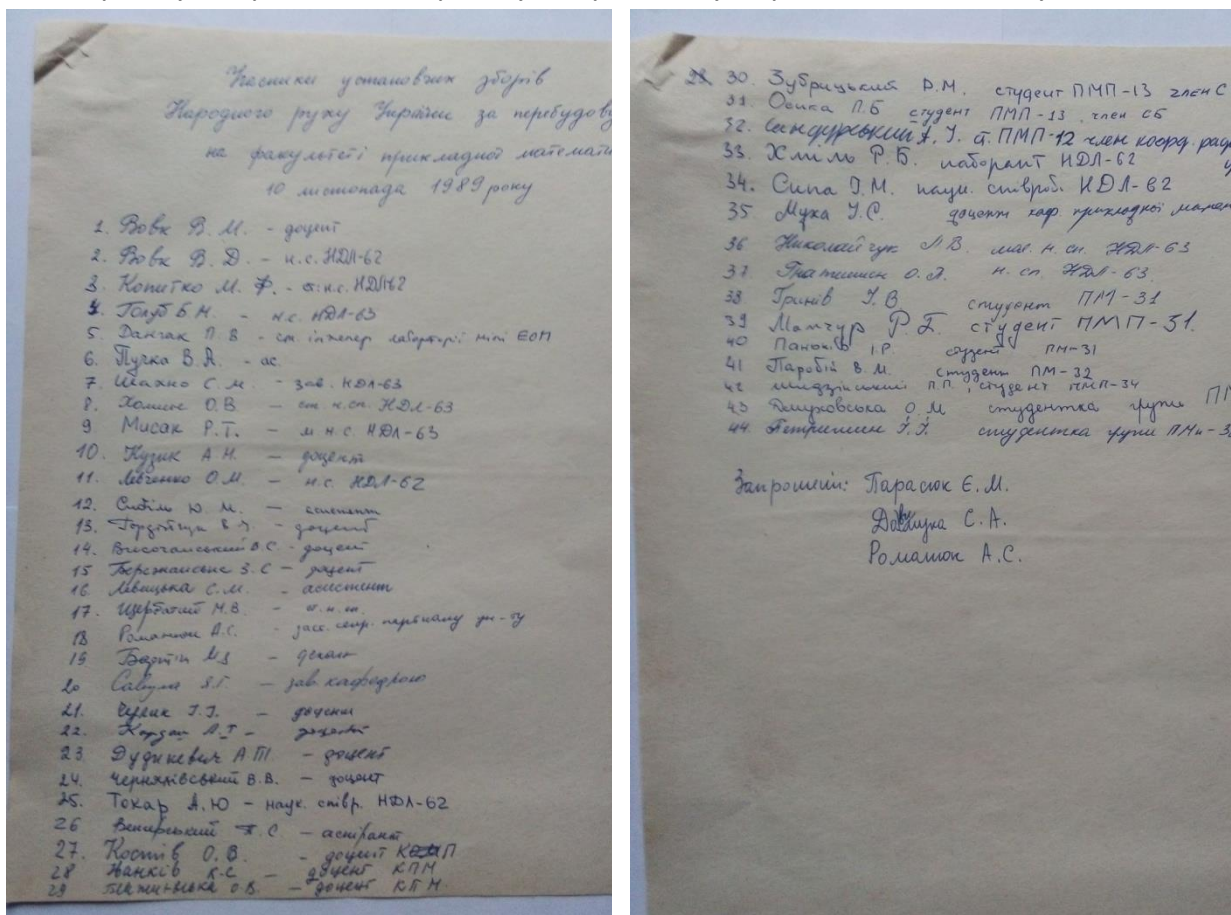 Учасники установчих зборів
Народного руху України за перебудову
на факультеті прикладної математи
10 листопада 1989 року
1. Вовк В. М. - доцент
2. Вовк В. Д. - н.с. НДЛ-62
3. Копитко М. Ф. - ст.н.с. НДЛ-62
4. Голуб Б. М. - н.с. НДЛ-63
5. Данчак П. В - ст. інженер лабораторії міні ЕОМ
6. Пучка В. А. - ас.
7. Шахно С. М. - зав. НДЛ-63
8. О. В - ст н.сп. НДЛ-63
9 Мисак Р. Т. - м н. с. НДЛ-63
10. Кузик А. Н. - доцент
11. Левченко О. М. - н.с. НДЛ-62
12. Сибіль Ю. М. - асистент
13. - доцент
14. Височанський В. С - доцент
15 З. С - доцент
16 Левицька С. М. - асистент
17. Щербатий М. В. -
18 Романюк А. С. - заст. секр. парткому ун-ту
19 Бартіш М. Я - декан
20 Савула Я. Г. - зав. кафедрою
21. - доцент
22. - доцент
23. Дудикевич А. Т. - доцент
24. Чернялівський В. В. - доцент
25. Токар А. Ю - наук. співр. НДЛ-62
26 Венгерський П. С. - аспірант
27. Костів О. В. - доцент
28 Жанків К. С. - доцент КПМ
29 О. В. - доцент КПМ
30. Зубрицький Р. М. студент ПМП-13 член С
31. Осика П. Б студент ПМП-13, член СБ
32. І. ст. ПМП-12 член коорд. рад
33. Хміль Р. Б. лаборант НДЛ-62
34. Сипа І. М. наук. співроб. НДЛ-62
35 Муха І. С. доцент каф. прикладної матем
36 Николайчук Л. В. мол. н. сп. НДЛ-63
37. О. Я. н. сп. НДЛ-63
38 Гринів І. В студент ПМ-31
39 Манчур Р. студент ПМП-31.
40 Паньків І. Р. студент ПМ-31
41 Паробій В. М. студент ПМ-32
42 П. П., студент ПМП-34
43 О. М студентка групи ПМ
44. Петришин І. Й. студентка групи ПМп-3
Запрошені: Парасюк Є. М.
С. А.
Романюк А. С.